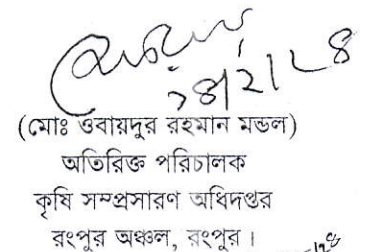 ১৪/২/২৪
(মোঃ ওবায়দুর রহমান মন্ডল)
অতিরিক্ত পরিচালক
কৃষি সম্প্রসারণ অধিদপ্তর
রংপুর অঞ্চল, রংপুর।